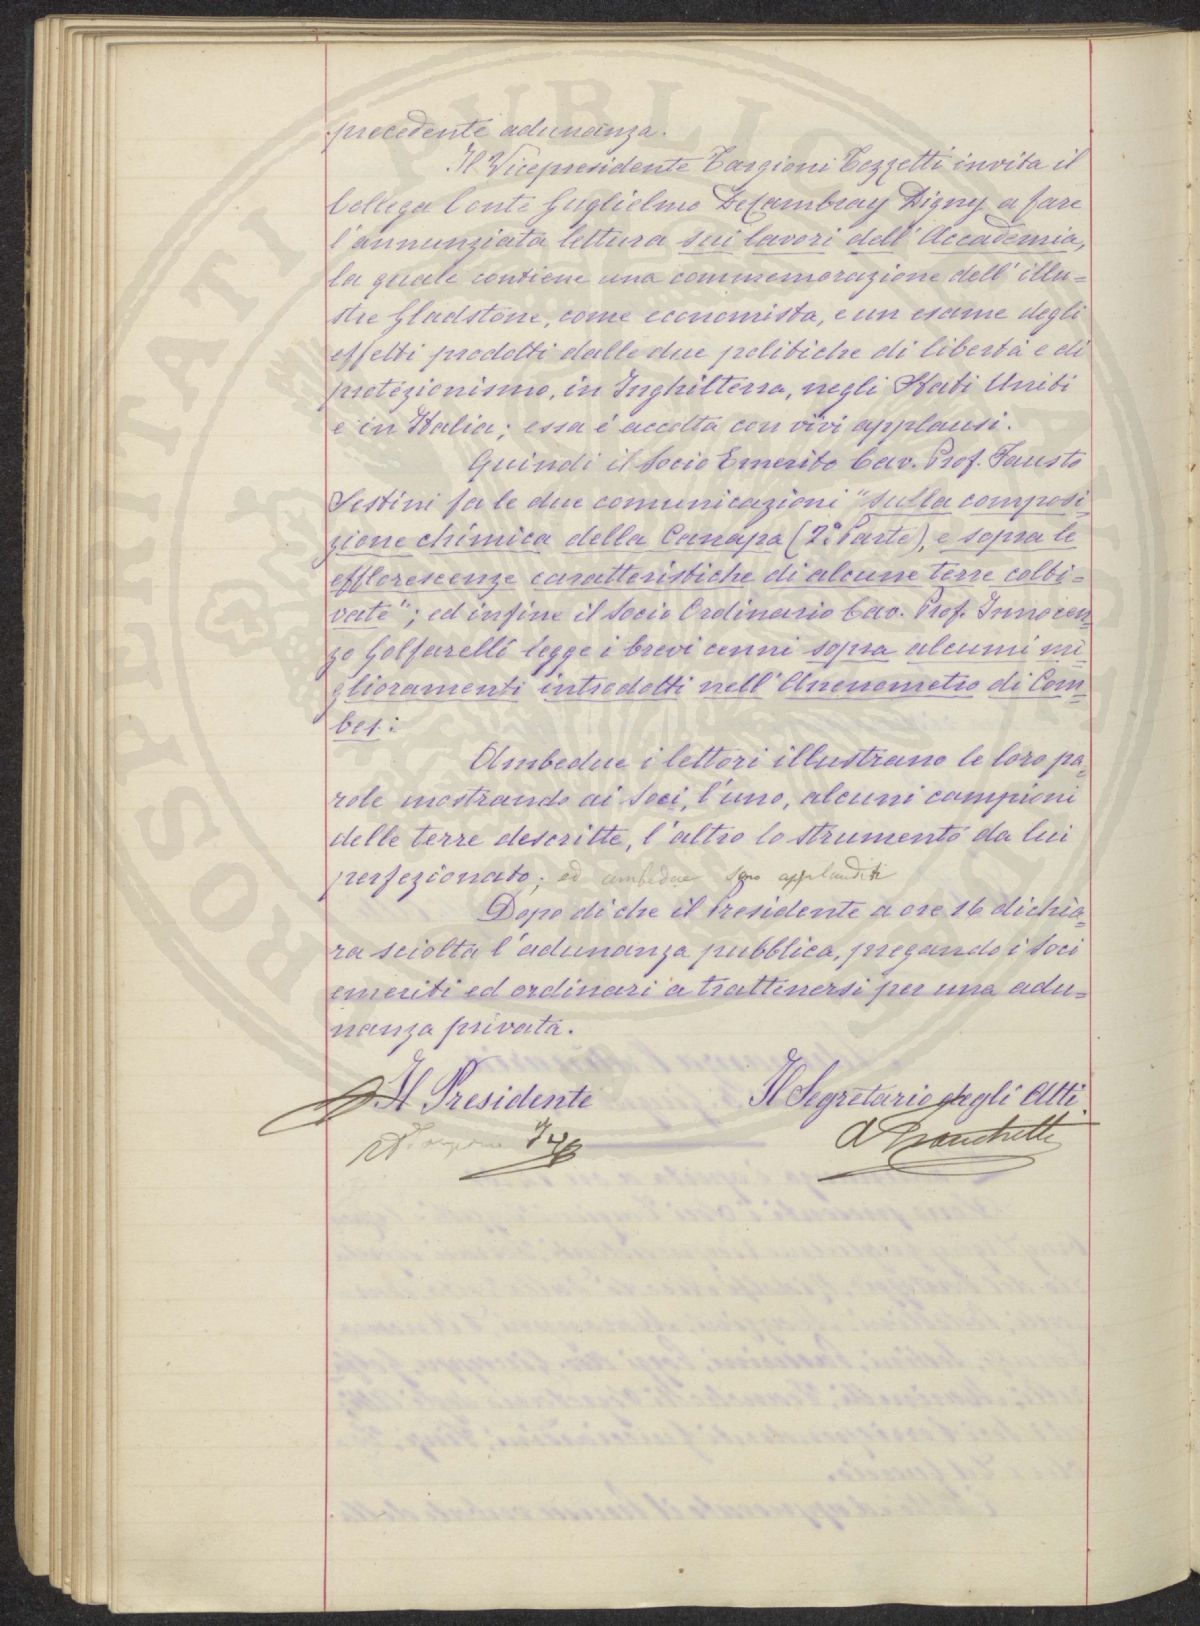 precedente adunanza.
Il Vicepresidente Targioni Tozzetti invita il
Collega Conte Guglielmo DeCambray Digny a fare
l'annunziata lettura sui lavori dell'Accademia,
la quale contiene una commemorazione dell'illu=
stre Gladstone, come economista, e un esame degli
effetti prodotti dalle due politiche di libertà e di
protezionismo, in Inghilterra, negli Stati Uniti
e in Italia; essa è accolta con vivi applausi.
Quindi il Socio Emerito Cav. Prof. Fausto
Sestini fa le due comunicazioni "sulla composi=
zione chimica della Canapa (2ª Parte), e sopra le
efflorescenze caratteristiche di alcune terre colti=
vate"; ed infine il Socio Ordinario Cav. Prof. Innocen=
zo Golfarelli legge i brevi cenni sopra alcumi mi=
glioramenti introdotti nell'Anenometro di Com=
bes:
Ambedue i lettori illustrano le loro pa=
role mostrando ai Soci, l'uno, alcuni campioni
delle terre descritte, l'altro lo strumento da lui
perfezionato; ed ambedue sono applauditi
Dopo di che il Presidente a ore 16 dichia=
ra sciolta l'adunanza pubblica, pregando i Soci
emeriti ed ordinari a trattenersi per una adu=
nanza privata.
Il Presidente Il Segretario degli Atti
A Franchetti